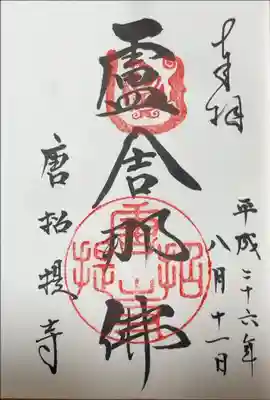 奉拝
平成二十六年
八月十一日
盧舎那佛
唐招提寺